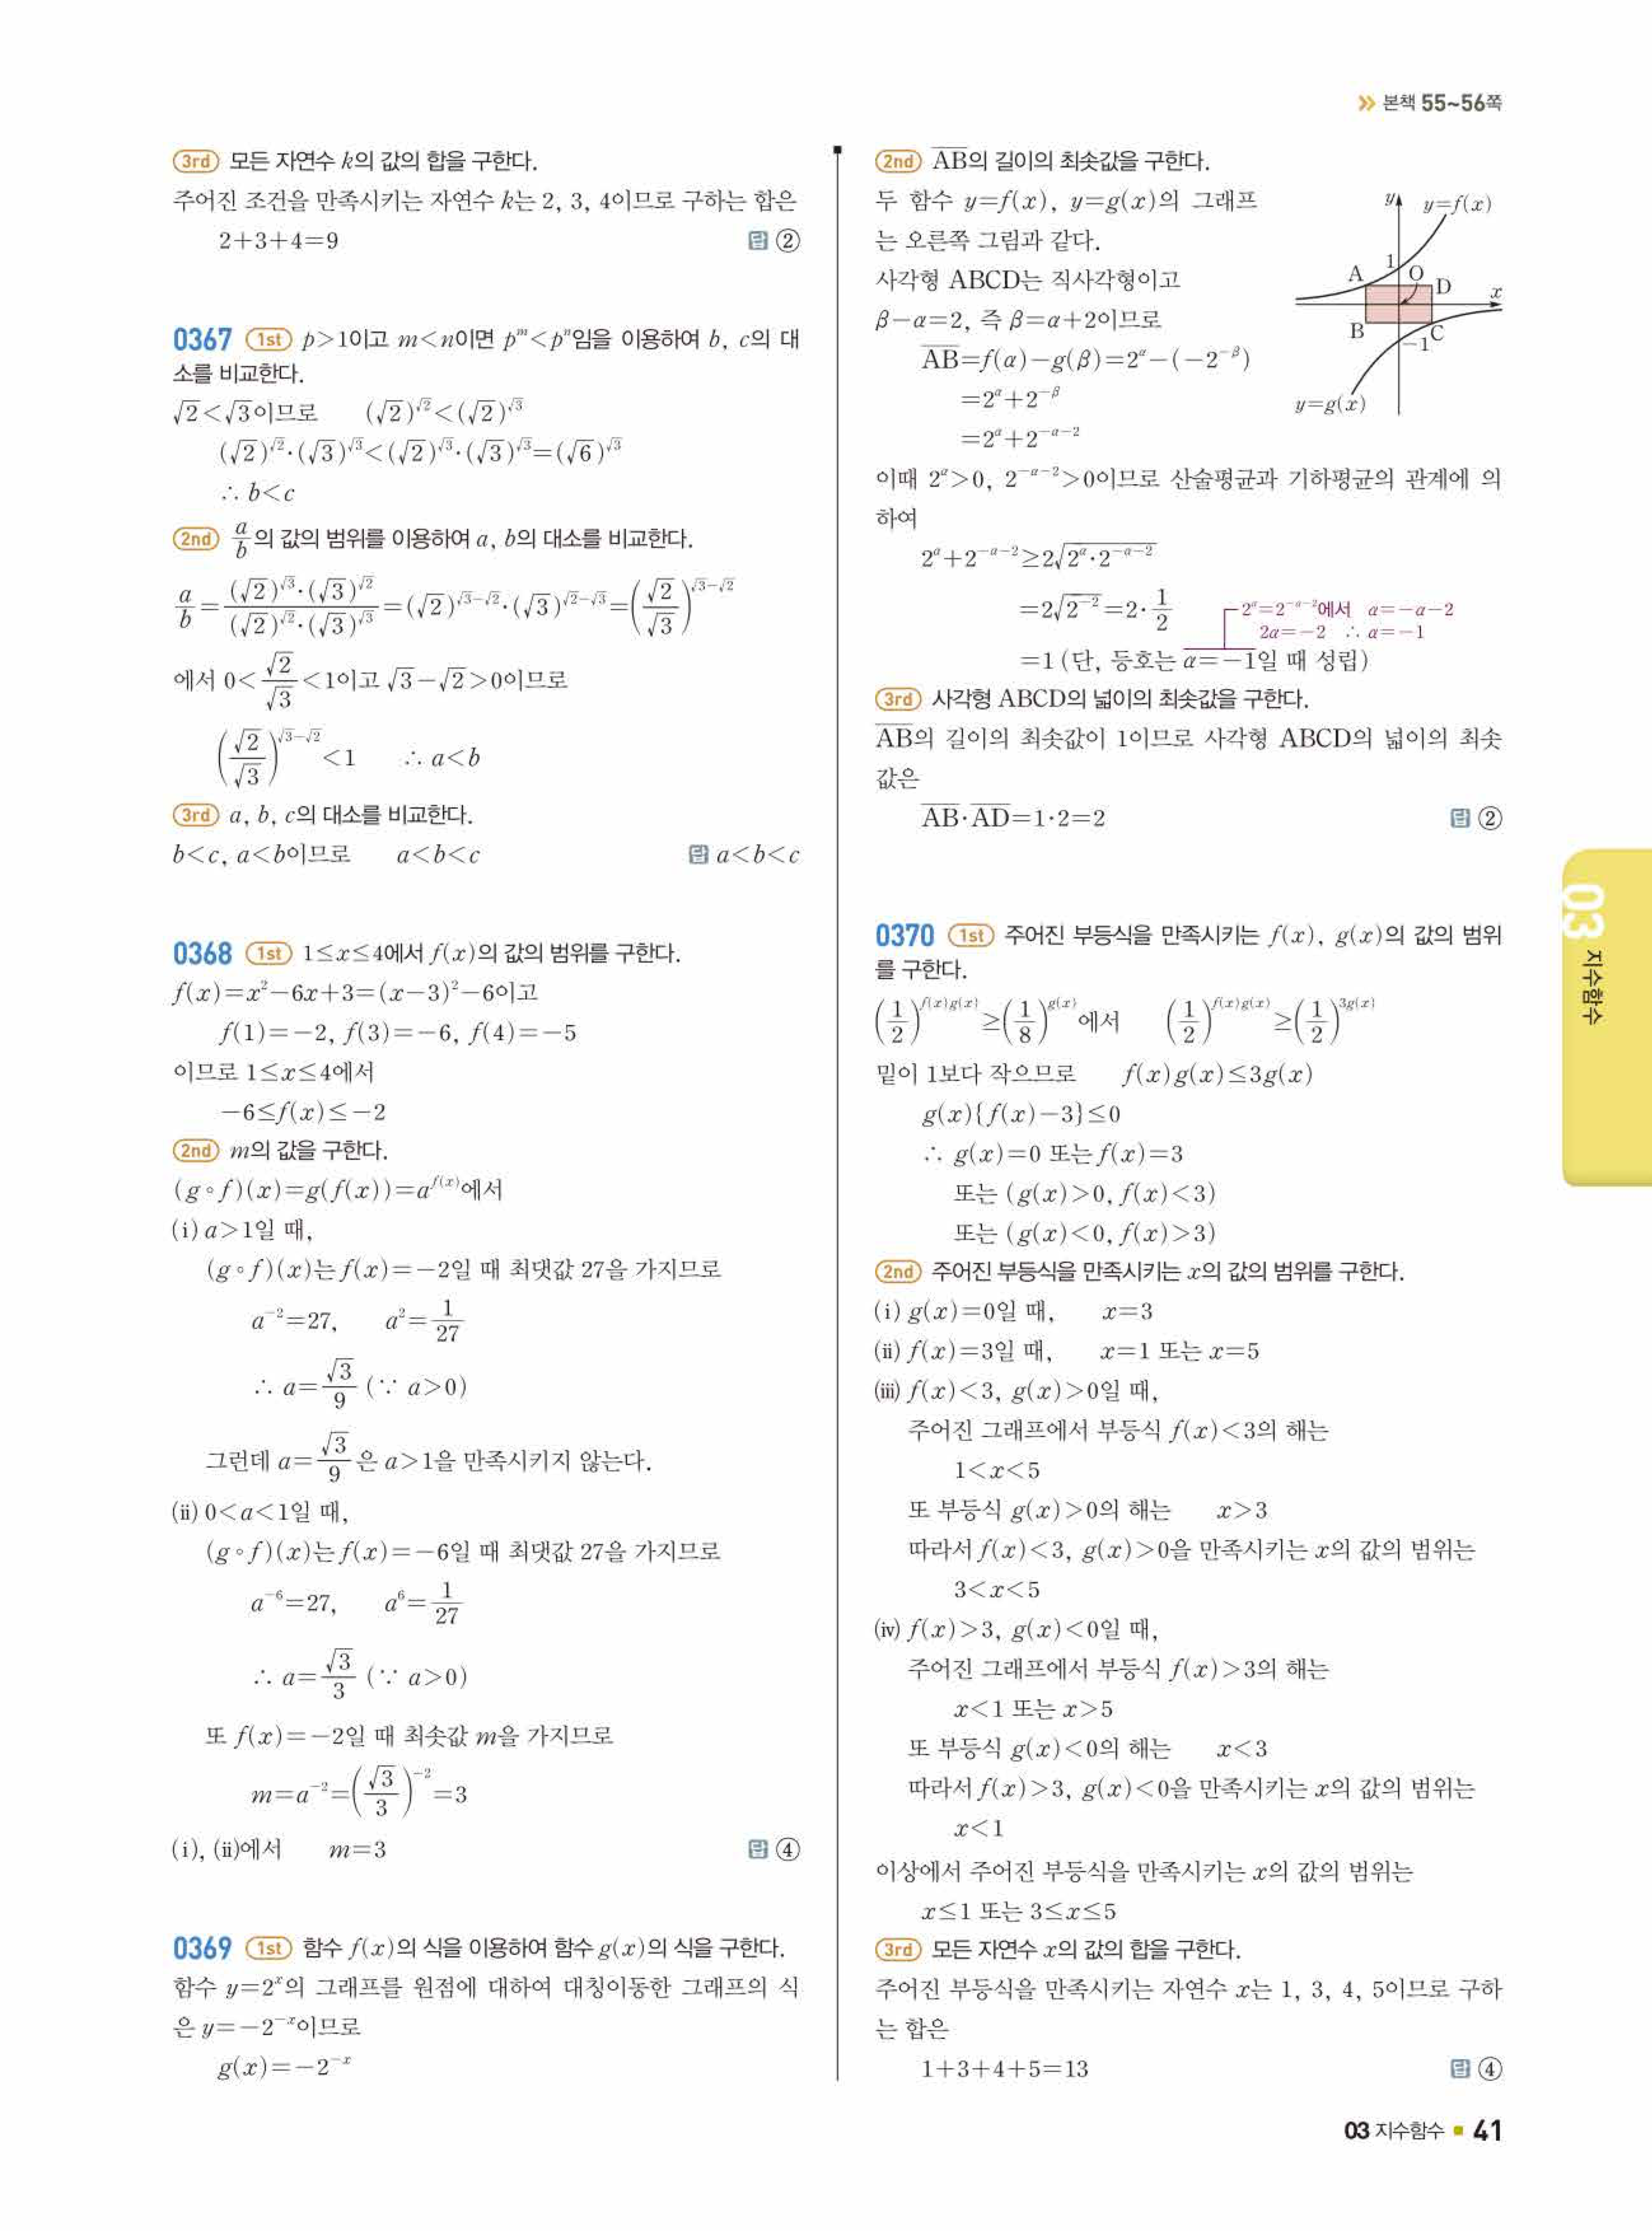 ≫ 본책 55~56쪽
3rd 모든 자연수 k의 값의 합을 구한다.
주어진 조건을 만족시키는 자연수 k는 2, 3, 4이므로 구하는 합은
2+3+4=9 답 ②
0367 1st p>1이고 m<n이면 pᵐ<pⁿ임을 이용하여 b, c의 대
소를 비교한다.
√2<√3이므로 (√2)^√2<(√2)^√3
(√2)^√2·(√3)^√3<(√2)^√3·(√3)^√3=(√6)^√3
∴ b<c
2nd a/b의 값의 범위를 이용하여 a, b의 대소를 비교한다.
a/b={(√2)^√3·(√3)^√2}/{(√2)^√2·(√3)^√3}=(√2)^(√3-√2)·(√3)^(√2-√3)=(√2/√3)^(√3-√2)
에서 0<√2/√3<1이고 √3-√2>0이므로
(√2/√3)^(√3-√2)<1 ∴ a<b
3rd a, b, c의 대소를 비교한다.
b<c, a<b이므로 a<b<c 답 a<b<c
0368 1st 1≤x≤4에서 f(x)의 값의 범위를 구한다.
f(x)=x²-6x+3=(x-3)²-6이고
f(1)=-2, f(3)=-6, f(4)=-5
이므로 1≤x≤4에서
-6≤f(x)≤-2
2nd m의 값을 구한다.
(g∘f)(x)=g(f(x))=a^f(x)에서
(i) a>1일 때,
(g∘f)(x)는 f(x)=-2일 때 최댓값 27을 가지므로
a⁻²=27, a²=1/27
∴ a=√3/9 (∵ a>0)
그런데 a=√3/9은 a>1을 만족시키지 않는다.
(ii) 0<a<1일 때,
(g∘f)(x)는 f(x)=-6일 때 최댓값 27을 가지므로
a⁻⁶=27, a⁶=1/27
∴ a=√3/3 (∵ a>0)
또 f(x)=-2일 때 최솟값 m을 가지므로
m=a⁻²=(√3/3)⁻²=3
(i), (ii)에서 m=3 답 ④
0369 1st 함수 f(x)의 식을 이용하여 함수 g(x)의 식을 구한다.
함수 y=2ˣ의 그래프를 원점에 대하여 대칭이동한 그래프의 식
은 y=-2⁻ˣ이므로
g(x)=-2⁻ˣ
2nd AB의 길이의 최솟값을 구한다.
두 함수 y=f(x), y=g(x)의 그래프
는 오른쪽 그림과 같다.
사각형 ABCD는 직사각형이고
β-α=2, 즉 β=α+2이므로
AB=f(α)-g(β)=2^α-(-2^(-β))
=2^α+2^(-β)
=2^α+2^(-α-2)
y
y=f(x)
1
A
O
D
x
B
C
-1
y=g(x)
이때 2^α>0, 2^(-α-2)>0이므로 산술평균과 기하평균의 관계에 의
하여
2^α+2^(-α-2)≥2√(2^α·2^(-α-2))
=2√(2⁻²)=2·1/2
2^α=2^(-α-2)에서 α=-α-2
2α=-2 ∴ α=-1
=1 (단, 등호는 α=-1일 때 성립)
3rd 사각형 ABCD의 넓이의 최솟값을 구한다.
AB의 길이의 최솟값이 1이므로 사각형 ABCD의 넓이의 최솟
값은
AB·AD=1·2=2 답 ②
0370 1st 주어진 부등식을 만족시키는 f(x), g(x)의 값의 범위
를 구한다.
(1/2)^f(x)g(x)≥(1/8)^g(x)에서 (1/2)^f(x)g(x)≥(1/2)^3g(x)
밑이 1보다 작으므로 f(x)g(x)≤3g(x)
g(x){f(x)-3}≤0
∴ g(x)=0 또는 f(x)=3
또는 (g(x)>0, f(x)<3)
또는 (g(x)<0, f(x)>3)
2nd 주어진 부등식을 만족시키는 x의 값의 범위를 구한다.
(i) g(x)=0일 때, x=3
(ii) f(x)=3일 때, x=1 또는 x=5
(iii) f(x)<3, g(x)>0일 때,
주어진 그래프에서 부등식 f(x)<3의 해는
1<x<5
또 부등식 g(x)>0의 해는 x>3
따라서 f(x)<3, g(x)>0을 만족시키는 x의 값의 범위는
3<x<5
(iv) f(x)>3, g(x)<0일 때,
주어진 그래프에서 부등식 f(x)>3의 해는
x<1 또는 x>5
또 부등식 g(x)<0의 해는 x<3
따라서 f(x)>3, g(x)<0을 만족시키는 x의 값의 범위는
x<1
이상에서 주어진 부등식을 만족시키는 x의 값의 범위는
x≤1 또는 3≤x≤5
3rd 모든 자연수 x의 값의 합을 구한다.
주어진 부등식을 만족시키는 자연수 x는 1, 3, 4, 5이므로 구하
는 합은
1+3+4+5=13 답 ④
03 지수함수
03 지수함수 ■ 41